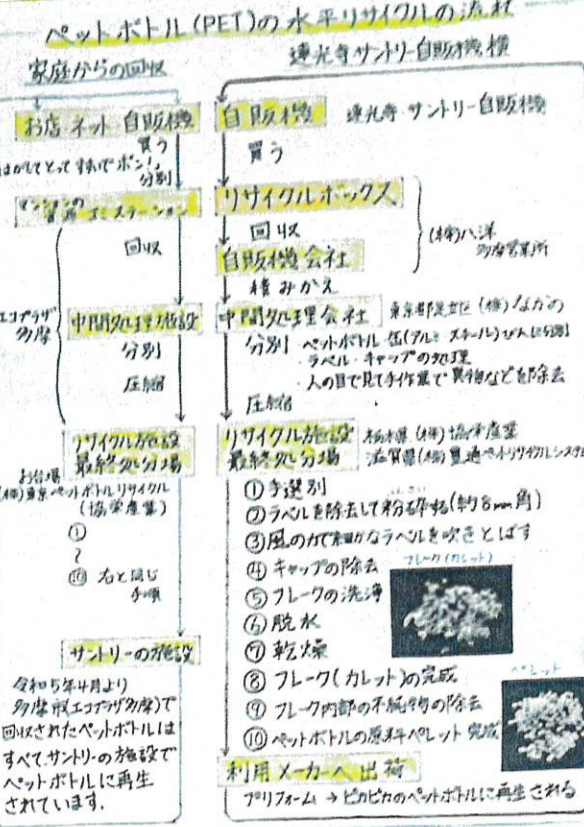 ペットボトル(PET)の水平リサイクルの流れ
家庭からの回収
お店 ネット 自販機
買う
はがしてとって すすいでポン!
分別
マンションの
資源ゴミステーション
回収
エコプラザ
多摩
中間処理施設
分別
圧縮
リサイクル施設
最終処分場
お台場
(株)東京ペットボトルリサイクル
(協栄産業)
①
〜
⑩ 右と同じ
手順
サントリーの施設
令和5年4月より
多摩市(エコプラザ多摩)で
回収されたペットボトルは
すべてサントリーの施設で
ペットボトルに再生
されています。
連光寺サントリー自販機横
自販機 連光寺 サントリー自販機
買う
リサイクルボックス
回収
自販機会社
(株)八洋
多摩営業所
積みかえ
中間処理会社 東京都足立区 (株)なかの
分別 ペットボトル・缶(アルミ・スチール)びんに分別
・ラベル・キャップの処理
・人の目で見て手作業で異物などを除去
圧縮
リサイクル施設 栃木県 (株)協栄産業
最終処分場 滋賀県(株)豊通ペットリサイクルシステム
① 手選別
② ラベルを除去して粉砕する(約8mm角)
③ 風の力で細かなラベルを吹きとばす
④ キャップの除去
フレーク(カレット)
⑤ フレークの洗浄
⑥ 脱水
⑦ 乾燥
⑧ フレーク(カレット)の完成
ペレット
⑨ フレーク内部の不純物の除去
⑩ ペットボトルの原料ペレット完成
利用メーカーへ出荷
プリフォーム → ピカピカのペットボトルに再生される